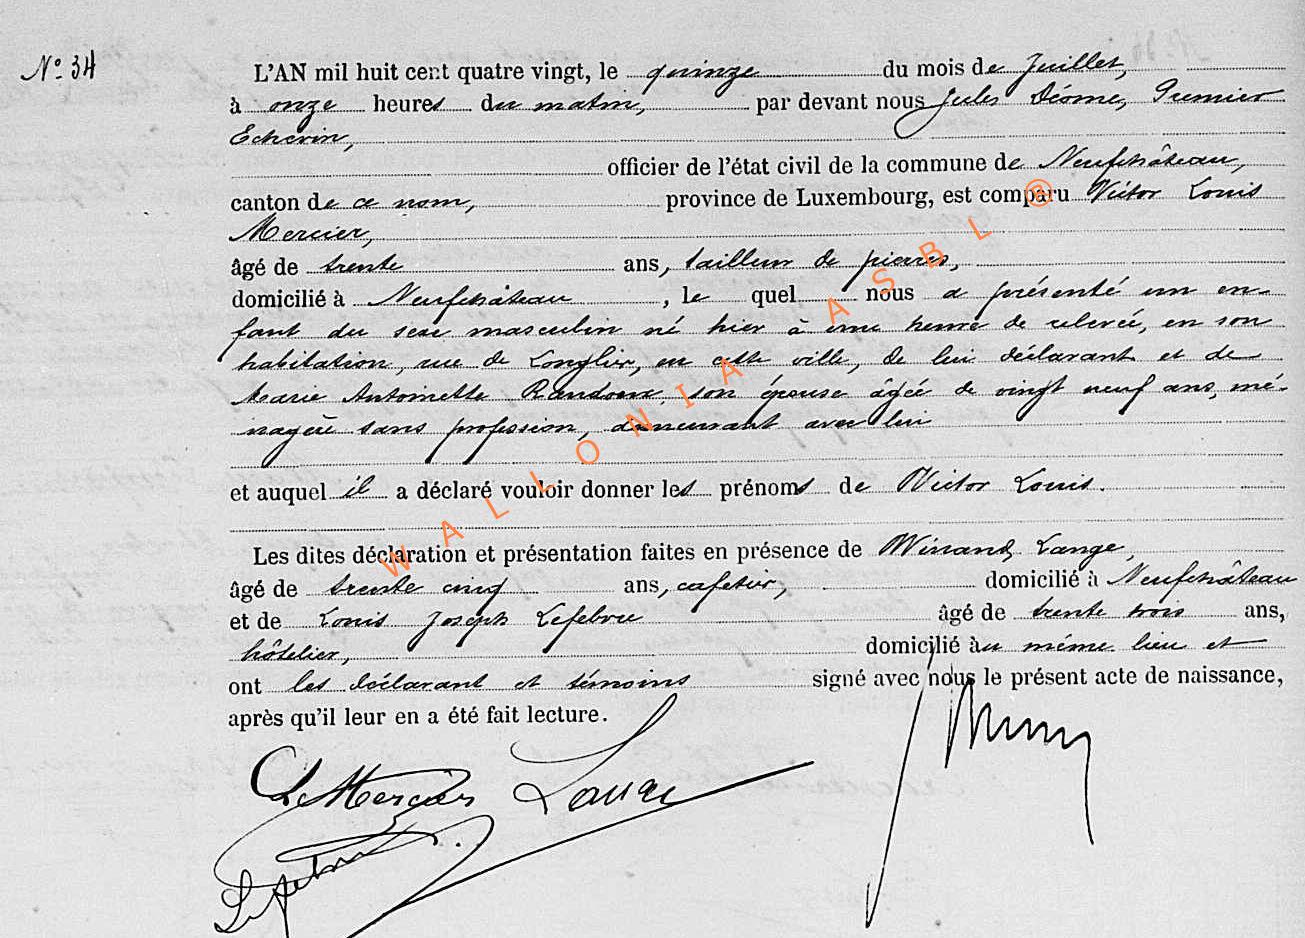 Nº 34
L'AN mil huit cent quatre vingt, le quinze du mois de Juillet,
à onze heures du matin, par devant nous Jules Déome, Premier
Echevin,
officier de l'état civil de la commune de Neufchâteau,
canton de ce nom, province de Luxembourg, est comparu Victor Louis
Mercier,
âgé de trente ans, tailleur de pierres,
domicilié à Neufchâteau, le quel nous a présenté un en-
fant du sexe masculin né hier à une heure de relevée, en son
habitation, rue de Longlier, en cette ville, de lui déclarant et de
Marie Antoinette son épouse âgée de vingt neuf ans, mé-
nagère sans profession, demeurant avec lui
et auquel il a déclaré vouloir donner les prénoms de Victor Louis.
Les dites déclaration et présentation faites en présence de Winand Lange,
âgé de trente cinq ans, cafetier, domicilié à Neufchâteau
et de Louis Joseph Lefebvre âgé de trente trois ans,
hôtelier, domicilié au même lieu et
ont les déclarant et témoins signé avec nous le présent acte de naissance,
après qu'il leur en a été fait lecture.
Mercier Lange
WALLONIA ASBL ®